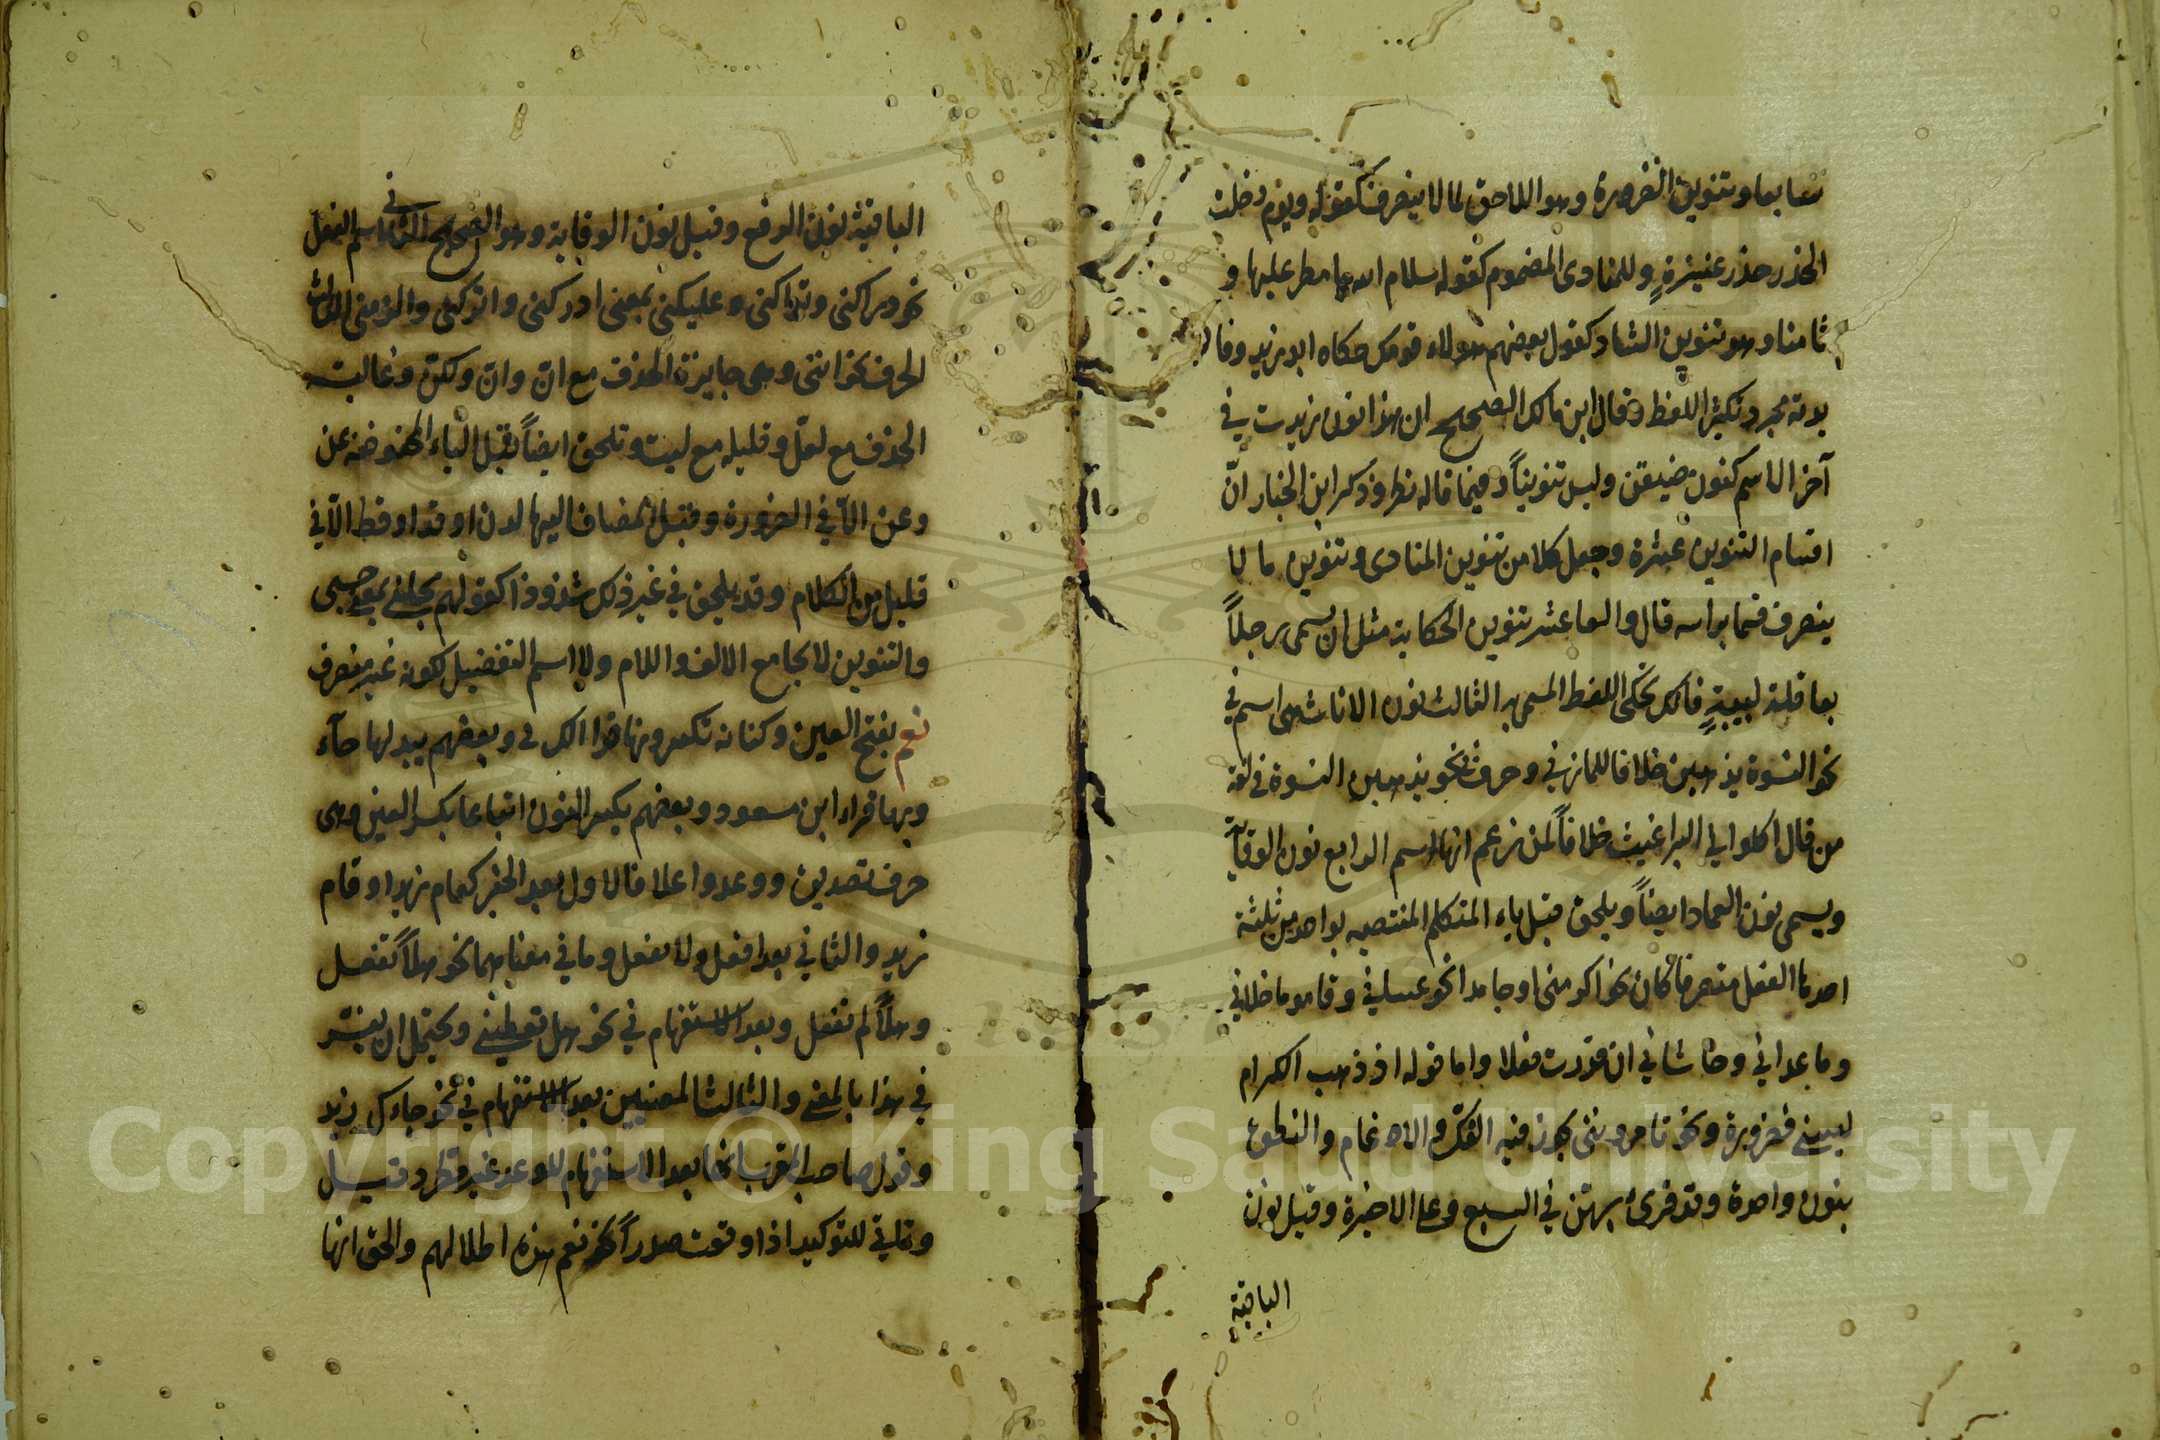 سابعا وتنوين الضرورة وهو اللاحق لما لا ينصرف كقوله ويوم دخلت
الخدر خدر عنيزةٍ وللمنادى المضموم كقوله سلام الله يا مطر عليها و
ثامنا وهو تنوين الشاذ كقول بعضهم هولاء قومك حكاه ابو زيد وفا
يدته مجرد تكثير اللفظ وقال ابن مالك الصحيح ان هذا نون زيدت في
آخر الاسم كنون ضيفن وليس تنويناً وفيما قاله نظر وذكر ابن الخباز انّ
اقسام التنوين عشرة وجعل كلا من تنوين المنادى وتنوين ما لا
ينصرف قسما براسه قال والعاشر تنوين الحكاية مثل ان يسمى رجلاً
بعاقلة لبيبةٍ فانك تحكى اللفظ المسمى به الثالث نون الاناث وهى اسم في
نحو النسوة يذهبن خلافا للمازني وحرف في نحو يذهبن النسوة في لغة
من قال اكلوني البراغيث خلافاً لمن زعم انها اسم الرابع نون الوقاية
ويسمى نون العماد ايضاً ويلحق قبل ياء المتكلم المنتصبه بواحد من ثلثة
احدها الفعل متصرفا كان نحو اكرمنى او جامدا نحو عسانى وقاموا ما خلانى
وما عدانى وحاشانى ان قدرت فعلا واما قوله اذ ذهب الكرام
ليسى فضرورة ونحو تامرونى يجوز فيه الفك والادغام والنطق
بنون واحدة وقد قرئ بهن في السبع وعلى الاخيرة وقيل نون
الباقية
الباقية نون الرفع وقيل نون الوقاية وهو الصحيح الثانى اسم الفعل
نحو دراكنى وتراكنى وعليكنى بمعنى ادركنى واتركنى والزمنى الثالث
الحرف نحو اننى وهى جايزة الحذف مع انّ وانّ ولكنّ وغالبة
الحذف مع لعلّ وقليله مع ليت وتلحق ايضاً قبل الياء المخفوضه عن
وعن الاّ في الضرورة وقبل المضاف اليها لدن او قد او قط الاّ في
قليل من الكلام وقد يلحق في غير ذلك شذوذا كقولهم بجلنى بمعنى حسبى
والتنوين لا يجامع الالف واللام ولا اسم التفضيل لكونه غير منصرف
نعم بفتح العين وكنانه تكسرونها وقرا الك ى وبعضهم يبدلها حآء
وبها قراء ابن مسعود وبعضهم يكسر النون اتباعا بكسر العين وهى
حرف تصديق ووعد واعلام فالاول بعد الخبر كقام زيد او قام
زيد والثاني بعد افعل ولا تفعل وما في معناهما نحو هلاّ تفعل
وهلاّ لم تفعل وبعد الاستفهام في نحو هل تعطينى ويحتمل ان يفسّر
في هذا بالمعنى والثالث المعنيين بعد الاستفهام في نحو جاءك زيد
وقول صاحب المقرب انها بعد الاستفهام للوعد غير مطرد وقيل
وتاتى للتوكيد اذا وقعت صدراً نحو نعم هذه اطلالهم والحق انها